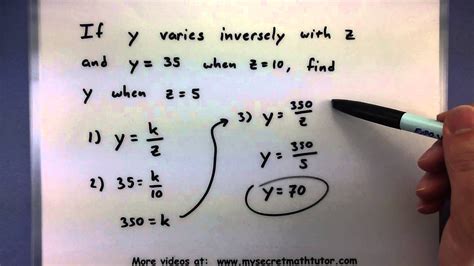 If y varies inversely with z
and y = 35 when z = 10, find
y when z = 5
1) y = k/z
2) 35 = k/10
350 = k
3) y = 350/z
y = 350/5
y = 70
More videos at: www.mysecretmathtutor.com